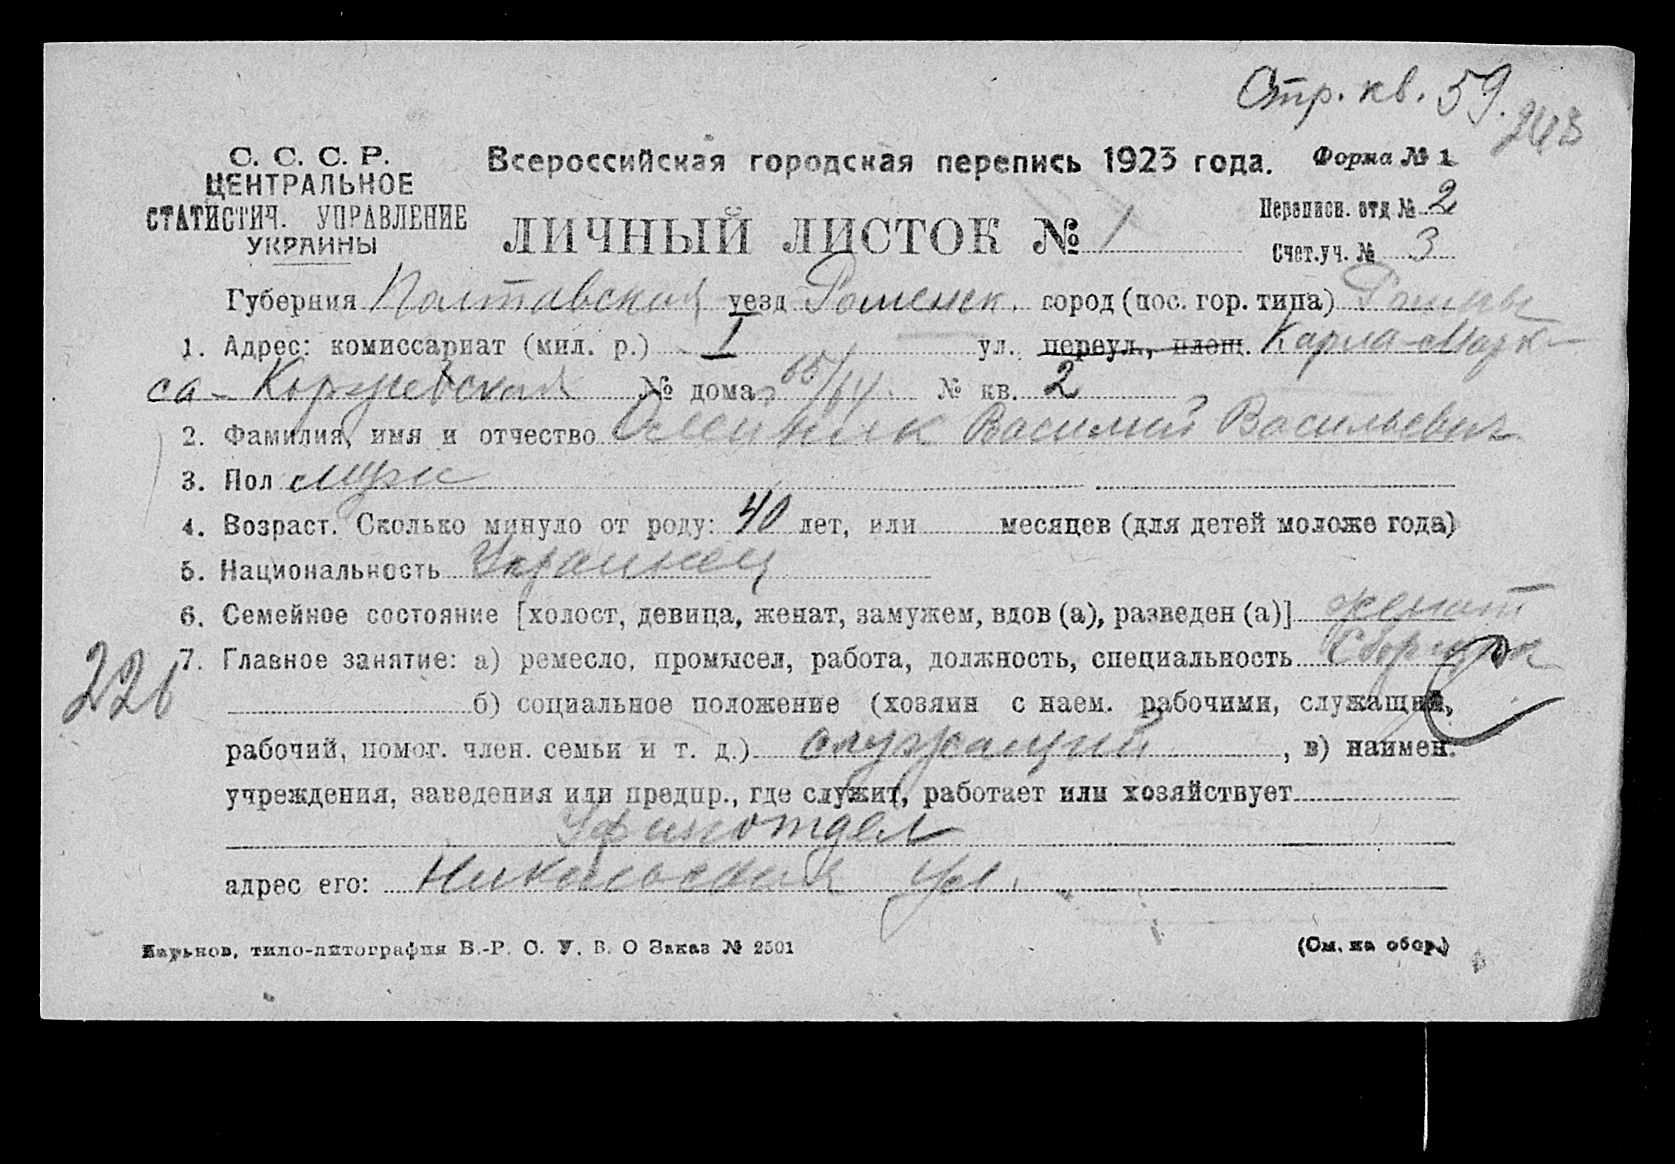 Стр. кв. 59.
243
С. С. С. Р.
ЦЕНТРАЛЬНОЕ
СТАТИСТИЧ. УПРАВЛЕНИЕ
УКРАИНЫ
Всероссийская городская перепись 1923 года.
Форма № 1
ЛИЧНЫЙ ЛИСТОК № 1
Переписн. отд № 2
Счет.уч. № 3
Губерния Полтавская уезд Роменск. город (пос. гор. типа) Ромны
1. Адрес: комиссариат (мил. р.) I ул., переул., площ. Карла-Марк-
са - Коржевская № дома 65/64 № кв. 2
2. Фамилия, имя и отчество Олейник Василий Васильевич
3. Пол муж
4. Возраст. Сколько минуло от роду: 40 лет, или месяцев (для детей моложе года)
5. Национальность Украинец
6. Семейное состояние [холост, девица, женат, замужем, вдов (а), разведен (а)] женат
7. Главное занятие: а) ремесло, промысел, работа, должность, специальность Сборщик
226
б) социальное положение (хозяин с наем. рабочими, служащий,
рабочий, помог. член. семьи и т. д.) служащий, в) наимен.
учреждения, заведения или предпр., где служит, работает или хозяйствует
Уфинотдел
адрес его: Никольская ул.
Харьков, типо-литография В.-Р. С. У. В. О Заказ № 2501
(См. на обор.)